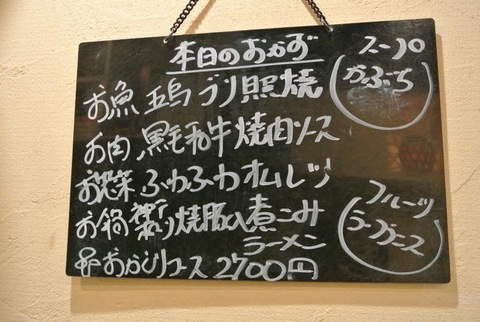 本日のおかず
お魚 五島 ブリ照焼
お肉 黒毛和牛焼肉ソース
お惣菜 ふわふわオムレツ
お鍋 焼豚入煮こみ
ラーメン
おかどりコース 2700円
スープ
かぶら
フルーツ